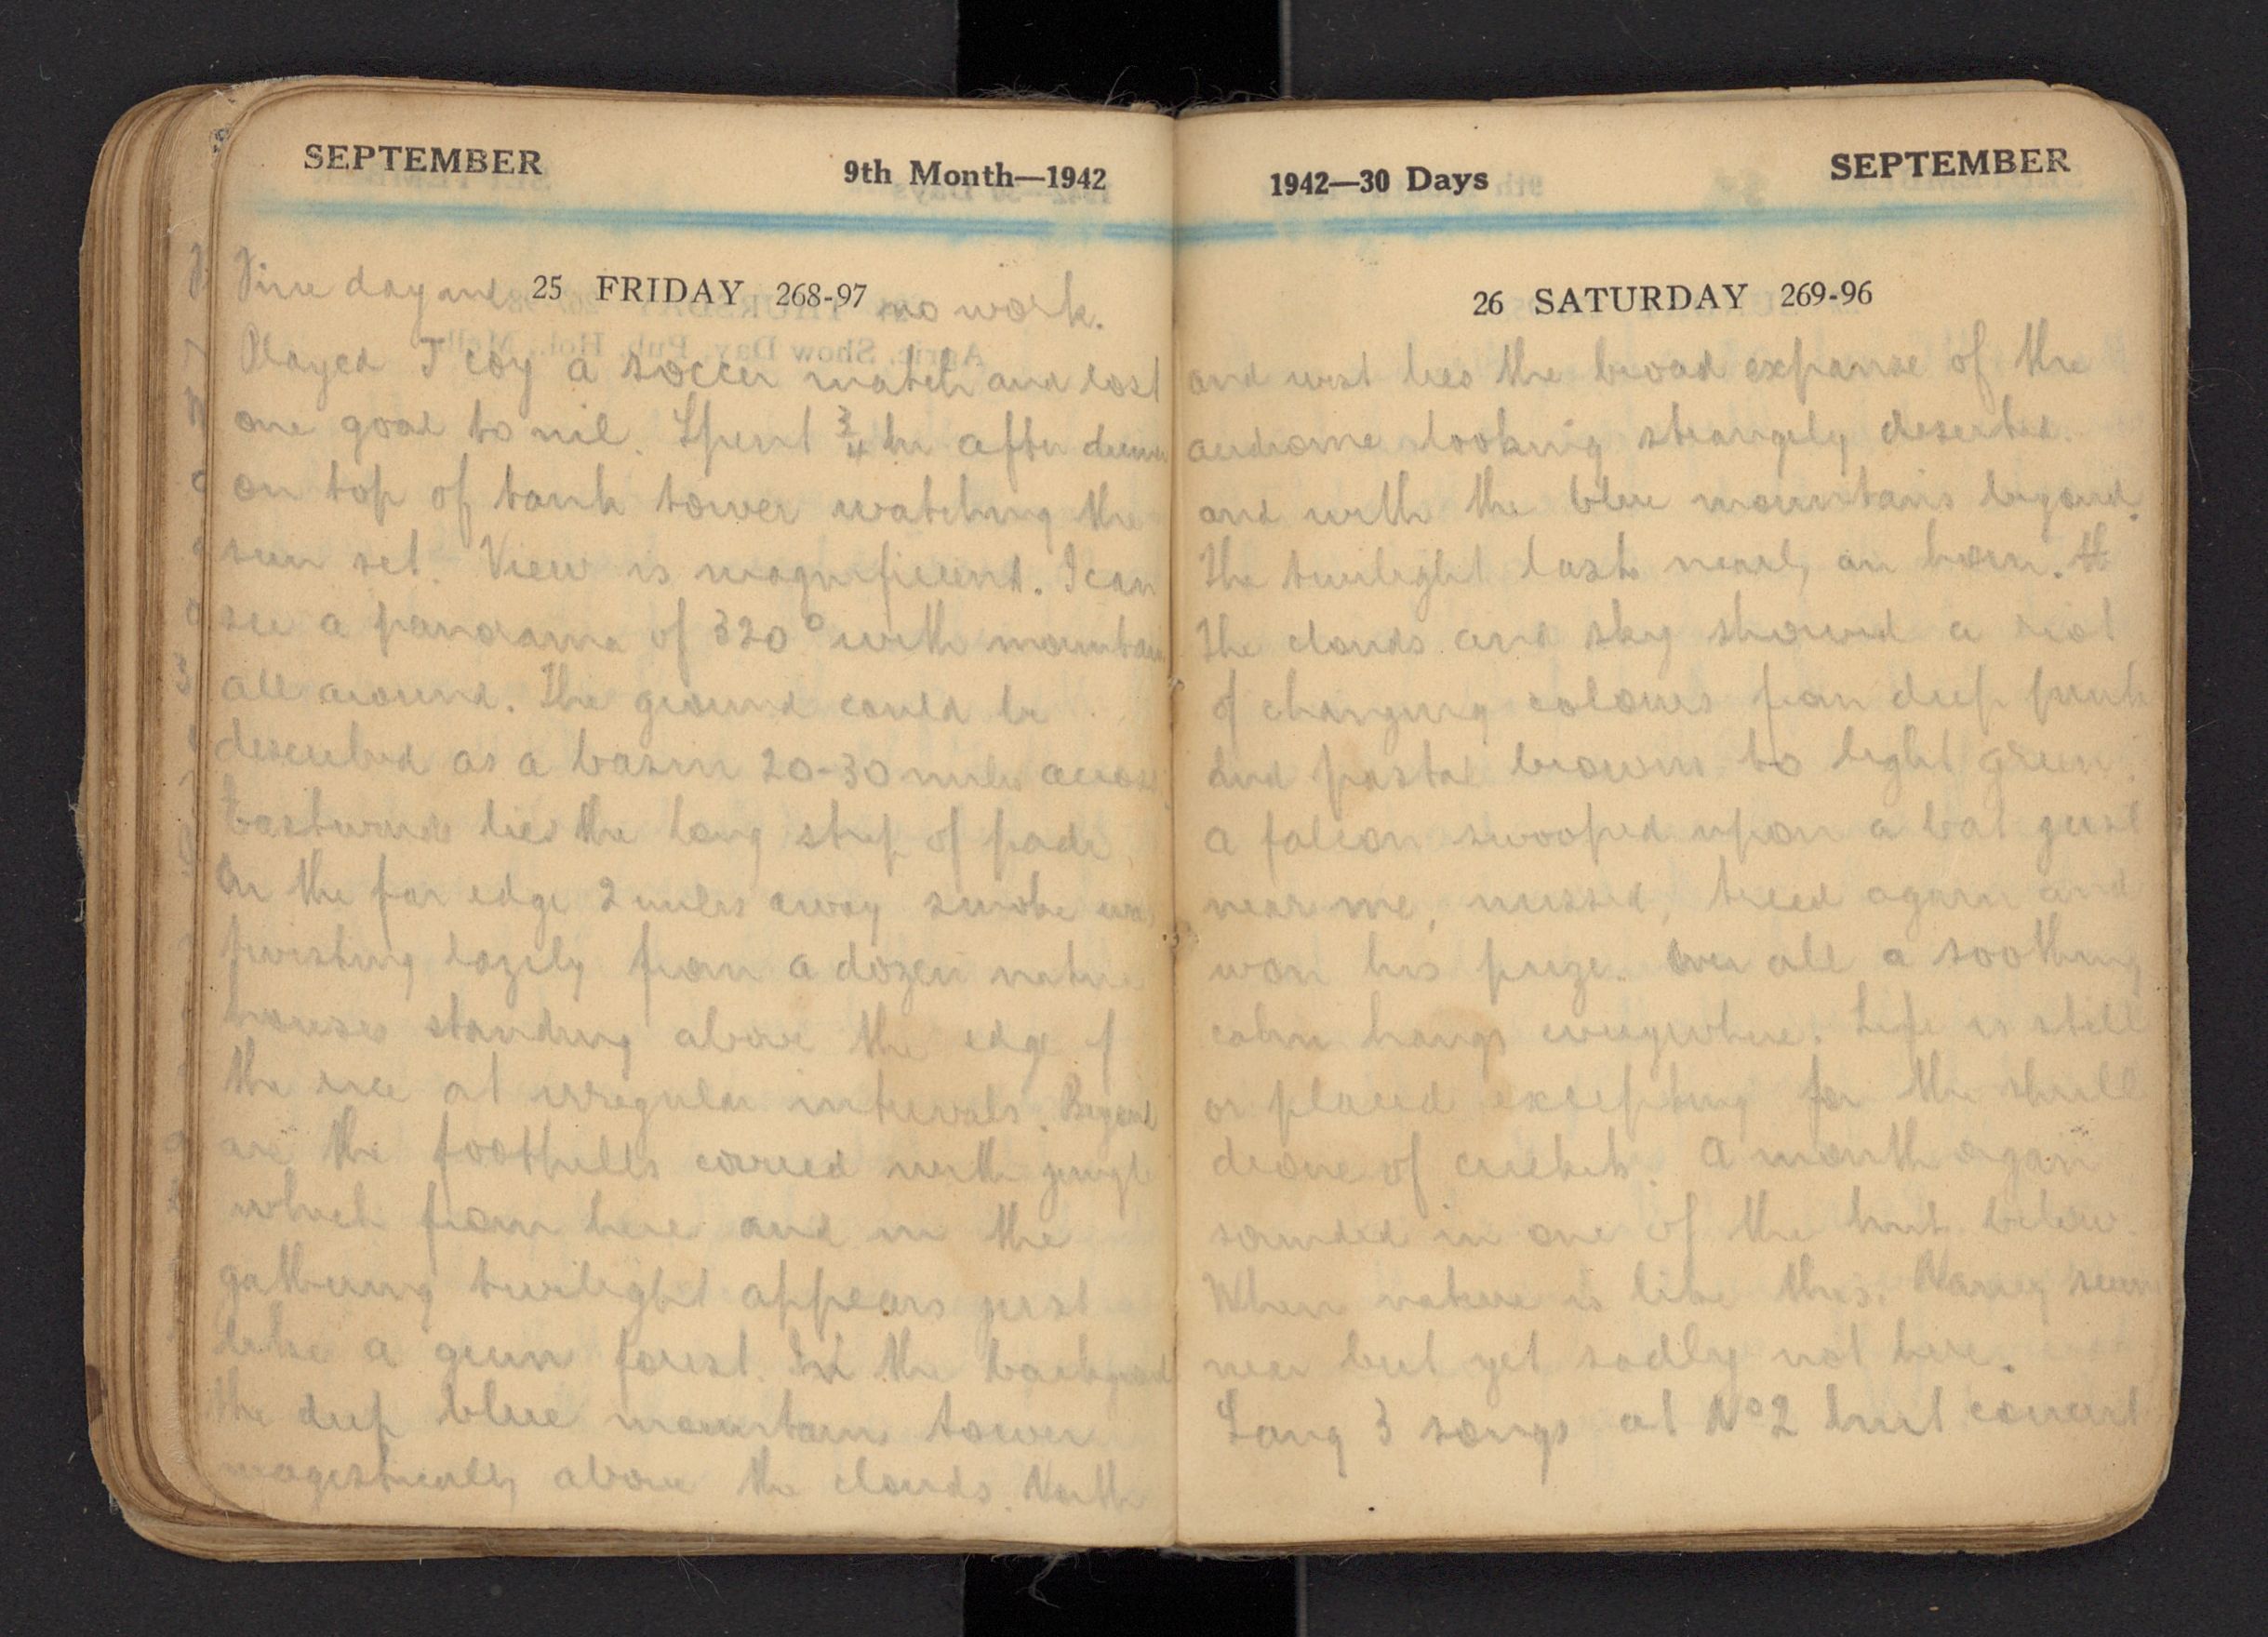 SEPTEMBER 9th Month—1942
25 FRIDAY 268-97
Fine day and no work.
Played I coy a soccer match and lost
one goal to nil. Spent 3/4 hr after dinner
on top of tank tower watching the
sun set. View is magnificent. I can
see a panorama of 320° with mountain
all around. The ground could be
described as a basin 20-30 miles across
Eastwards lies the long strip of padi.
On the far edge 2 miles away smoke was
twisting lazily from a dozen native
houses standing above the edge of
the rice at irregular intervals. Beyond
are the foothills covered with jungle
which from here and in the
gathering twilight appears just
like a green forest. In the background
the deep blue mountains tower
magestically above the clouds. North
1942—30 Days SEPTEMBER
26 SATURDAY 269-96
and west lies the broad expanse of the
aerdrome looking strangely deserted.
and with the blue mountains beyond.
The twilight lasts nearly an hour.
The clouds and sky showed a riot
of changing colours from deep pink
and pastel browns to light green.
A falcon swooped upon a bat just
near me, missed, tried again and
won his prize. Over all a soothing
calm hangs everywhere. Life is still
or placid excepting for the shrill
drone of crickets. A mouth organ
sounded in one of the huts below.
When nature is like this. Nancy seems
near but yet sadly not here.
Sang 3 songs at No 2 hut concert